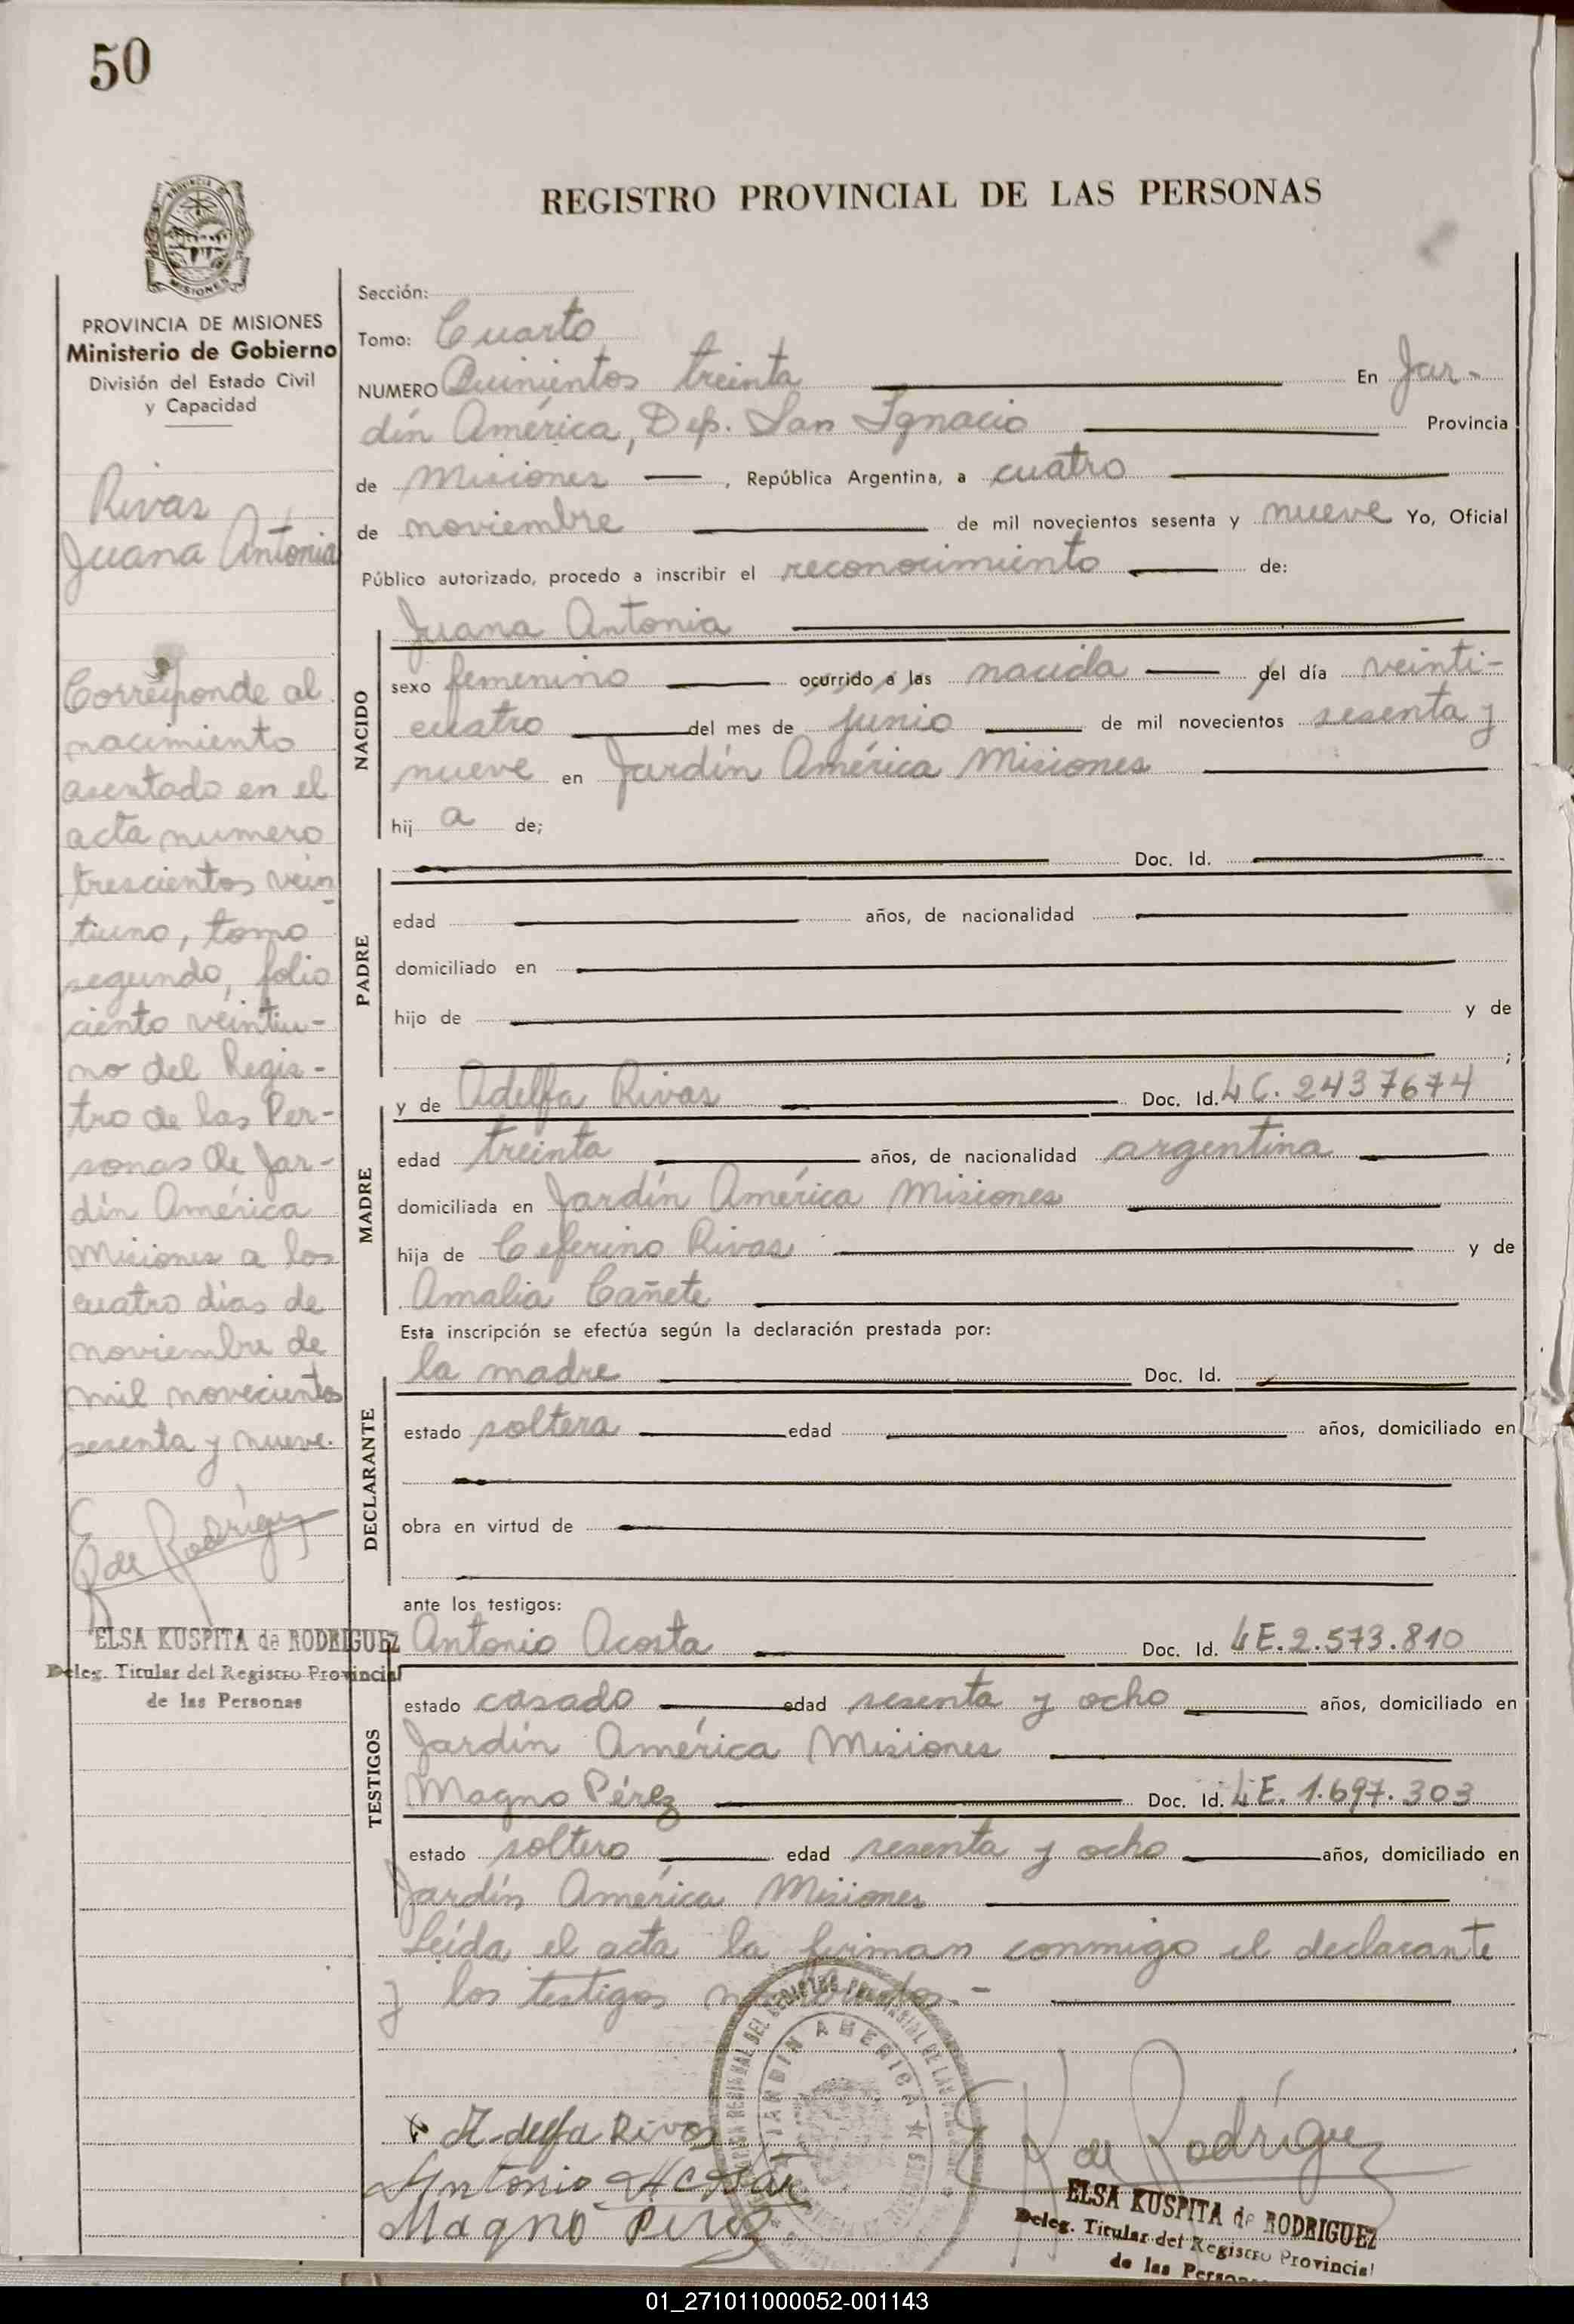 50
REGISTRO PROVINCIAL DE LAS PERSONAS
PROVINCIA DE MISIONES
Ministerio de Gobierno
División del Estado Civil
y Capacidad
Rivas
Juana Antonia
Corresponde al
nacimiento
asentado en el
acta numero
trescientos vein-
tiuno, tomo
segundo, folio
ciento veintiu-
no del Regis-
tro de las Per-
sonas de Jar-
dín América
Misiones a los
cuatro dias de
noviembre de
mil novecientos
sesenta y nueve.
E K de Rodríguez
ELSA KUSPITA de RODRIGUEZ
Deleg. Titular del Registro Provincial
de las Personas
Sección:
Tomo: Cuarto
NUMERO Quinientos treinta En Jar-
dín América, Dep. San Ignacio Provincia
de Misiones, República Argentina, a cuatro
de noviembre de mil novecientos sesenta y nueve Yo, Oficial
Público autorizado, procedo a inscribir el reconocimiento de:
NACIDO
Juana Antonia
sexo femenino ocurrido a las nacida del día veinti-
cuatro del mes de junio de mil novecientos sesenta y
nueve en Jardín América Misiones
hij a de;
PADRE
Doc. Id.
edad años, de nacionalidad
domiciliado en
hijo de y de
;
MADRE
y de Adelfa Rivas Doc. Id. L C. 2437674
edad treinta años, de nacionalidad argentina
domiciliada en Jardín América Misiones
hija de Ceferino Rivas y de
Amalia Cañete
Esta inscripción se efectúa según la declaración prestada por:
DECLARANTE
la madre Doc. Id.
estado soltera edad años, domiciliado en
obra en virtud de
ante los testigos:
TESTIGOS
Antonio Acosta Doc. Id. L E. 2.573.810
estado casado edad sesenta y ocho años, domiciliado en
Jardín América Misiones
Magno Pérez Doc. Id. L E. 1.697.303
estado soltero edad sesenta y ocho años, domiciliado en
Jardín América Misiones
Leída el acta la firman conmigo el declarante
y los testigos nombrados.-
JARDIN AMERICA
Adelfa Rivas
Antonio Acosta
Magno Perez
E K de Rodríguez
ELSA KUSPITA de RODRIGUEZ
Deleg. Titular del Registro Provincial
de las Personas
01_271011000052-001143